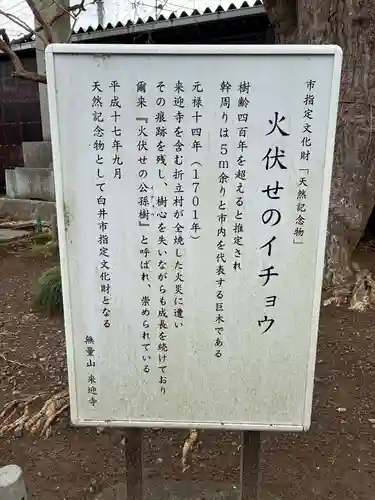 市指定文化財「天然記念物」
火伏せのイチョウ
樹齢四百年を超えると推定され
幹周りは5m余りと市内を代表する巨木である
元禄十四年(1701年)
来迎寺を含む折立村が全焼した火災に遭い
その痕跡を残し、樹心を失いながらも成長を続けており
爾来『火伏せの公孫樹』と呼ばれ、崇められている
平成十七年九月
天然記念物として白井市指定文化財となる
無量山 来迎寺